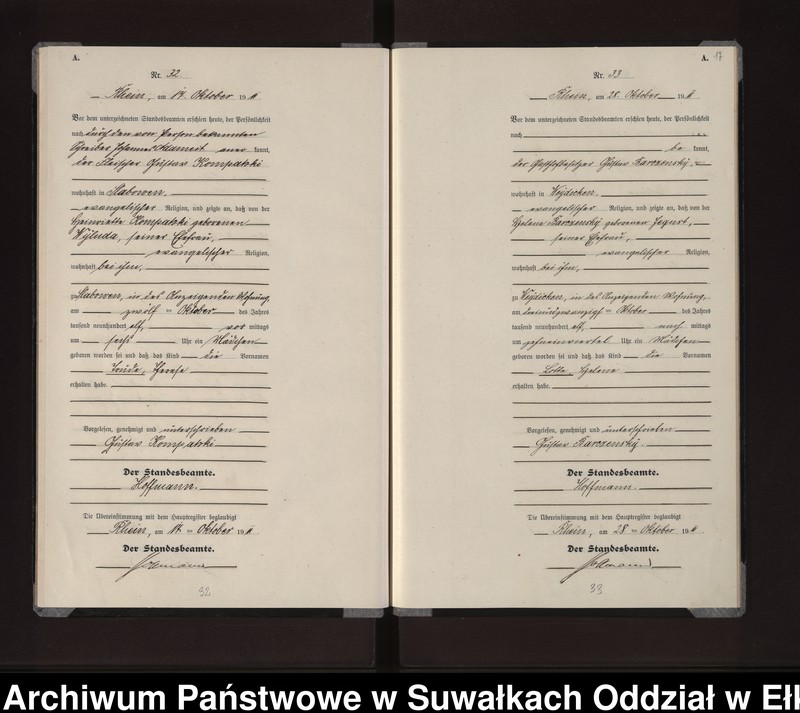 A.
Nr. 32
Rhein, am 14. Oktober 1911
Vor dem unterzeichneten Standesbeamten erschien heute, der Persönlichkeit
nach durch den von Person bekannten
Schreiber Johannes aner kannt,
der Fleischer Gustav Kompatzki
wohnhaft in Stabowen,
evangelischer Religion, und zeigte an, daß von der
Henriette Kompatzki geborenen
seiner Ehefrau,
evangelischer Religion,
wohnhaft bei ihm,
zu Stabowen, in des Anzeigenden Wohnung,
am zwölf = Oktober des Jahres
tausend neunhundert elf, vor mittags
um sechs Uhr ein Mädchen
geboren worden sei und daß das Kind die Vornamen
Therese
erhalten habe.
Vorgelesen, genehmigt und unterschrieben
Gustav Kompatzki
Der Standesbeamte.
Hoffmann.
Die Übereinstimmung mit dem Hauptregister beglaubigt
Rhein, am 14 ten Oktober 1911
Der Standesbeamte.
Hoffmann
32
A. 17
Nr. 33
Rhein, am 28. Oktober 1911
Vor dem unterzeichneten Standesbeamten erschien heute, der Persönlichkeit
nach
be kannt,
der Gustav Karczenský
wohnhaft in Weydicken
evangelischer Religion, und zeigte an, daß von der
Helene Karczenský geborenen Jegust,
seiner Ehefrau,
evangelischer Religion,
wohnhaft bei ihm,
zu Weydicken, in des Anzeigenden Wohnung,
am dreiundzwanzig = Oktober des Jahres
tausend neunhundert elf, nach mittags
um zehneinviertel Uhr ein Mädchen
geboren worden sei und daß das Kind die Vornamen
Lotte, Helene
erhalten habe.
Vorgelesen, genehmigt und unterschrieben
Gustav Karczenský.
Der Standesbeamte.
Hoffmann.
Die Übereinstimmung mit dem Hauptregister beglaubigt
Rhein, am 28 ten Oktober 1911
Der Standesbeamte.
Hoffmann
33
Archiwum Państwowe w Suwałkach Oddział w Ełk